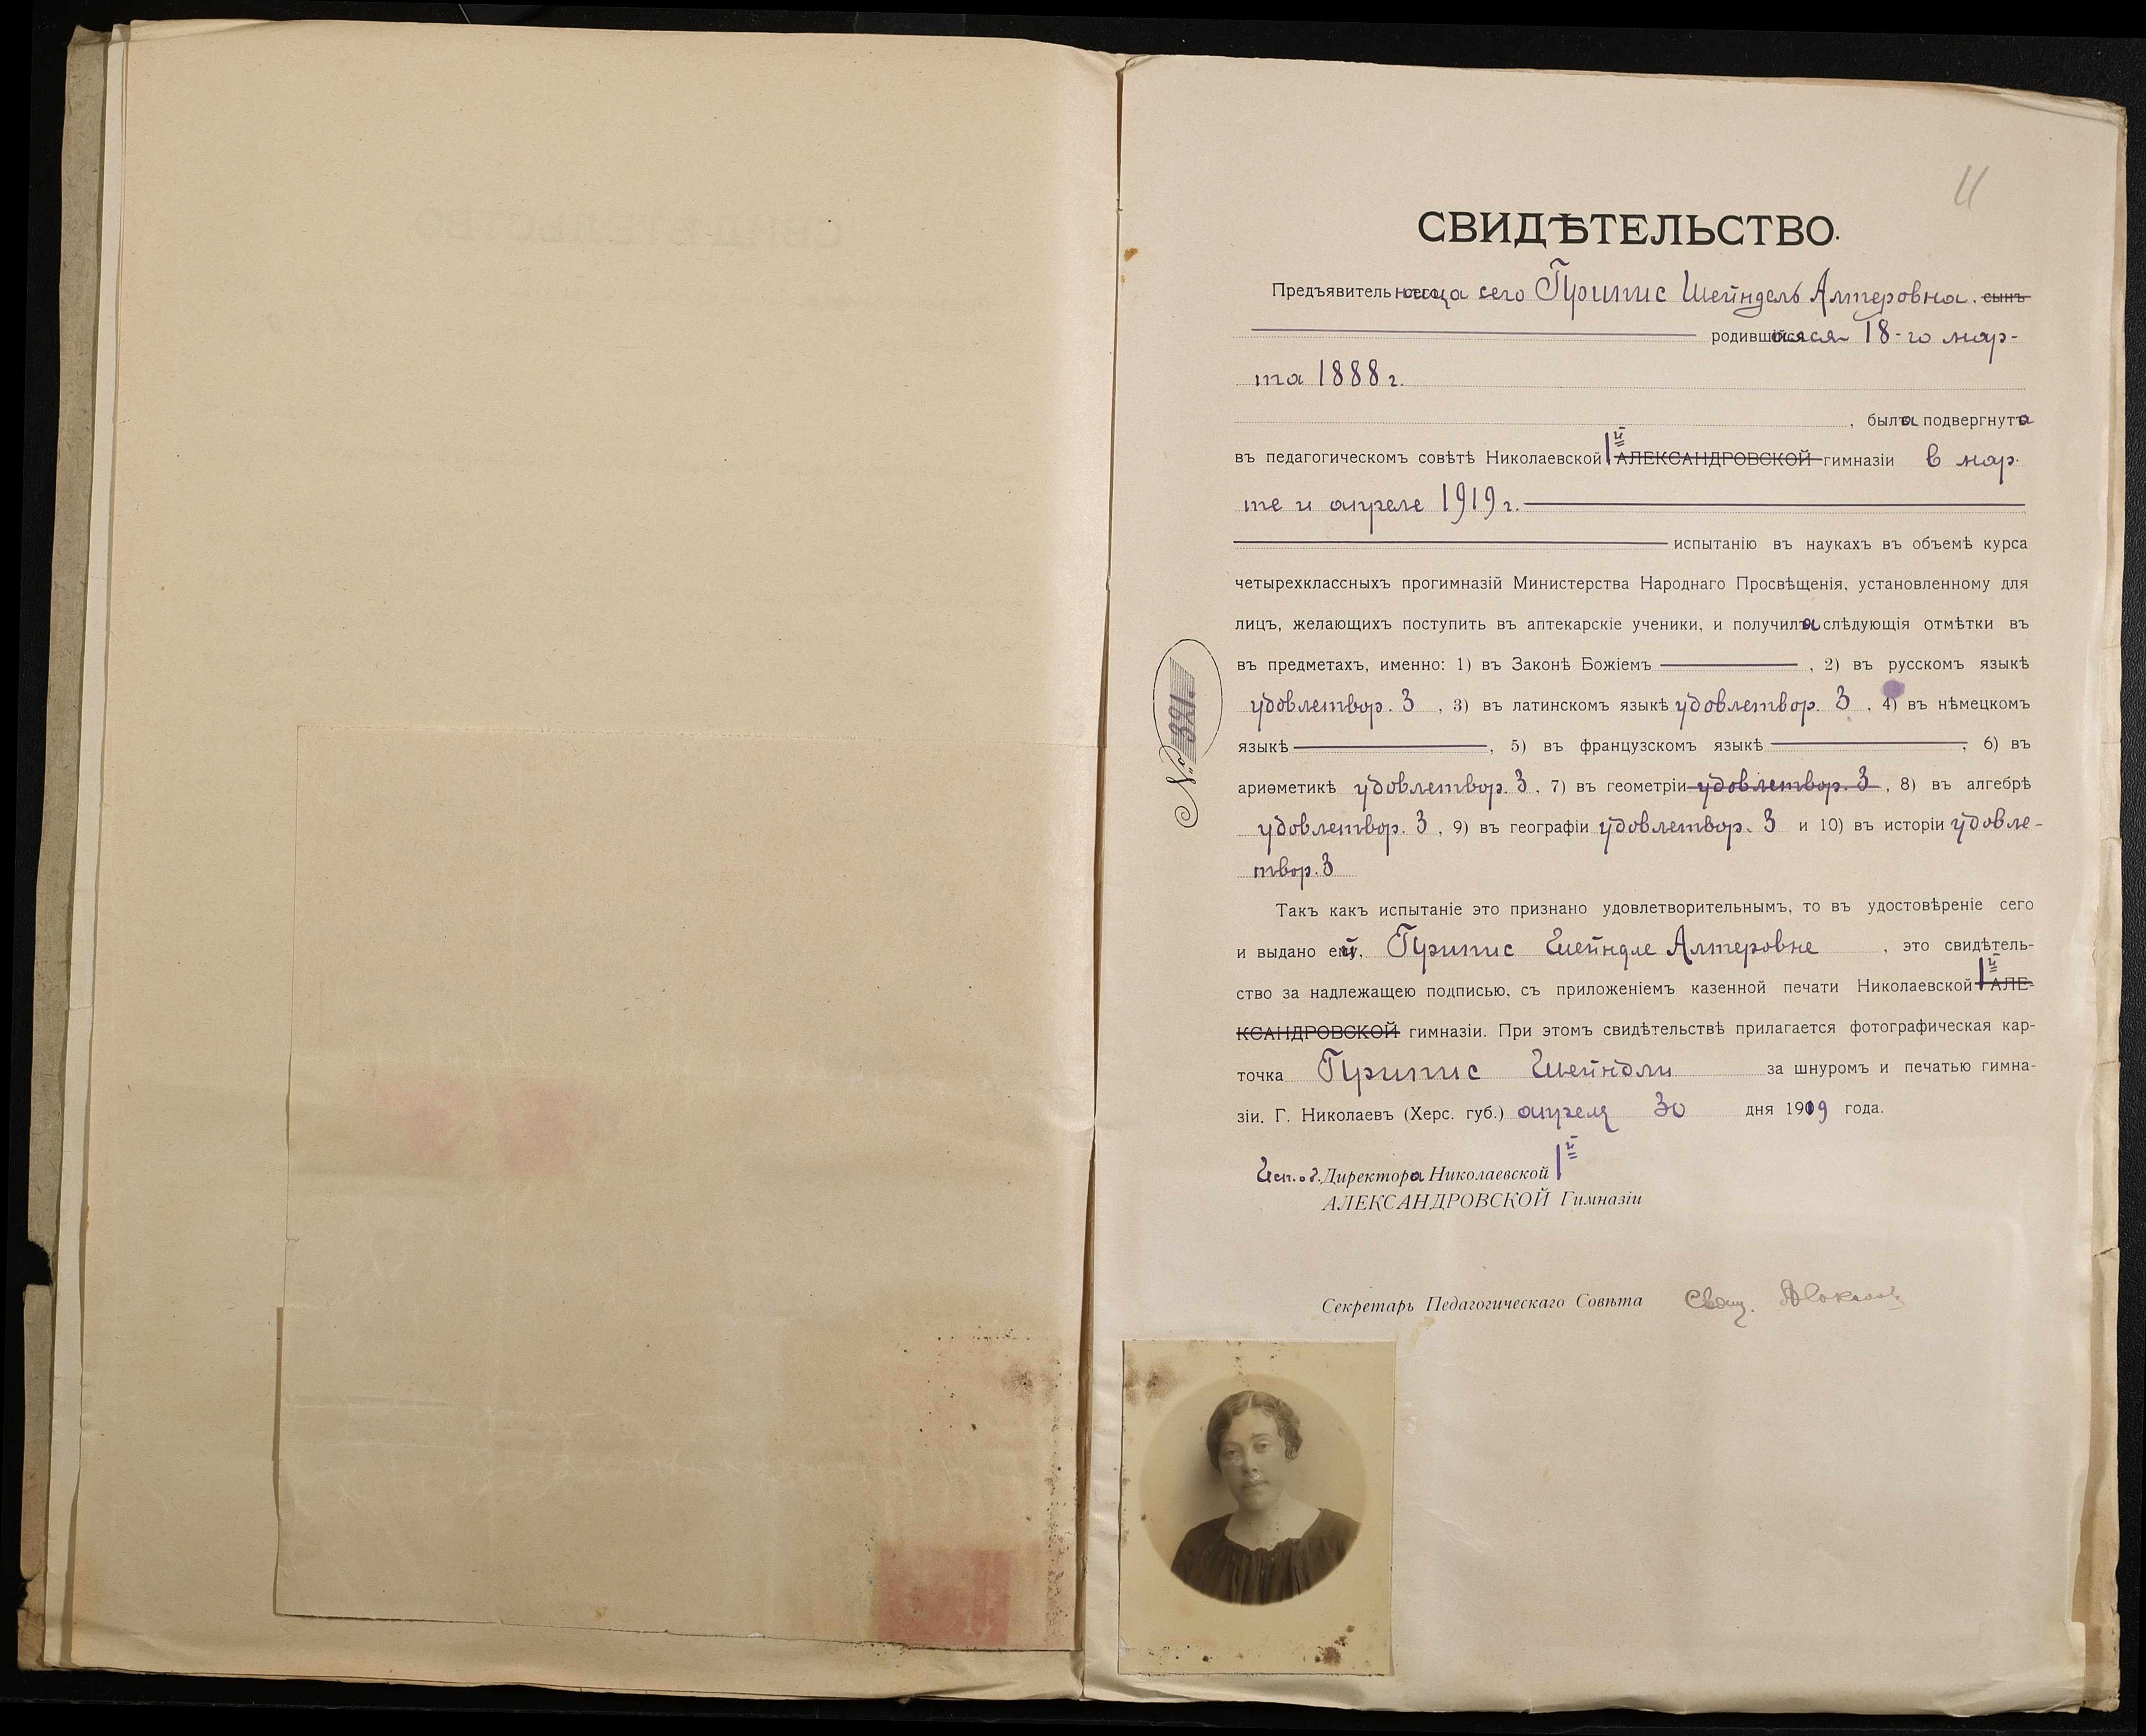 11
СВИДѢТЕЛЬСТВО.
Предъявительница сего Грипис Шейндель Алтеровна. сынъ
родившаяся 18-го мар-
та 1888 г.
, была подвергнута
въ педагогическомъ совѣтѣ Николаевской 1й АЛЕКСАНДРОВСКОЙ гимназіи в мар-
те и апреле 1919 г.
испытанію въ наукахъ въ объемѣ курса
четырехклассныхъ прогимназій Министерства Народнаго Просвѣщенія, установленному для
лицъ, желающихъ поступить въ аптекарскіе ученики, и получила слѣдующія отмѣтки въ
въ предметахъ, именно: 1) въ Законѣ Божіемъ , 2) въ русскомъ языкѣ
удовлетвор. 3 , 3) въ латинскомъ языкѣ удовлетвор. 3 , 4) въ нѣмецкомъ
языкѣ , 5) въ французскомъ языкѣ , 6) въ
ариѳметикѣ удовлетвор. 3 , 7) въ геометріи удовлетвор. 3 , 8) въ алгебрѣ
удовлетвор. 3 , 9) въ географіи удовлетвор. 3 и 10) въ исторіи удовле-
твор. 3
Такъ какъ испытаніе это признано удовлетворительнымъ, то въ удостовѣреніе сего
и выдано ей, Грипис Шейндле Алтеровне , это свидѣтель-
ство за надлежащею подписью, съ приложеніемъ казенной печати Николаевской 1й АЛЕ-
КСАНДРОВСКОЙ гимназіи. При этомъ свидѣтельствѣ прилагается фотографическая кар-
точка Грипис Шейндли за шнуромъ и печатью гимна-
зіи. Г. Николаевъ (Херс. губ.) апреля 30 дня 1919 года.
Исп. о. Директора Николаевской 1й
АЛЕКСАНДРОВСКОЙ Гимназіи
Секретарь Педагогическаго Совѣта Свящ.
№ 321.